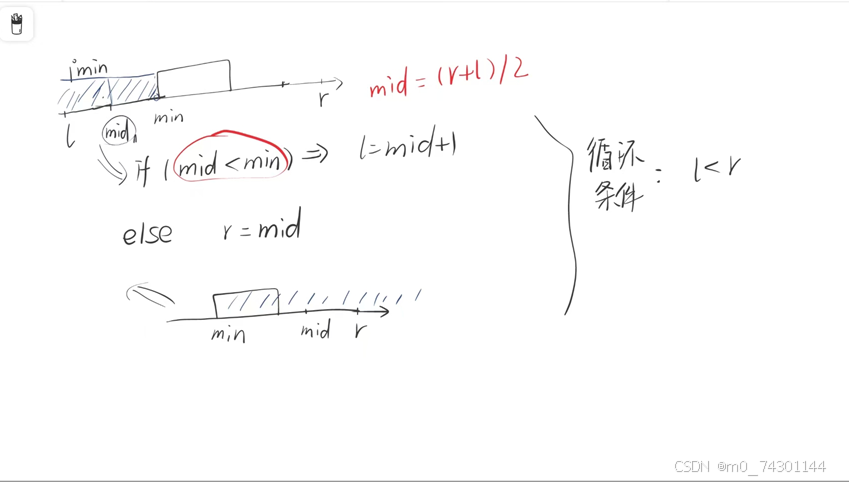 min
l mid min r
mid = (r+l)/2
if (mid < min) => l = mid+1
else r = mid
min mid r
循环
条件 : l < r
CSDN @m0_74301144